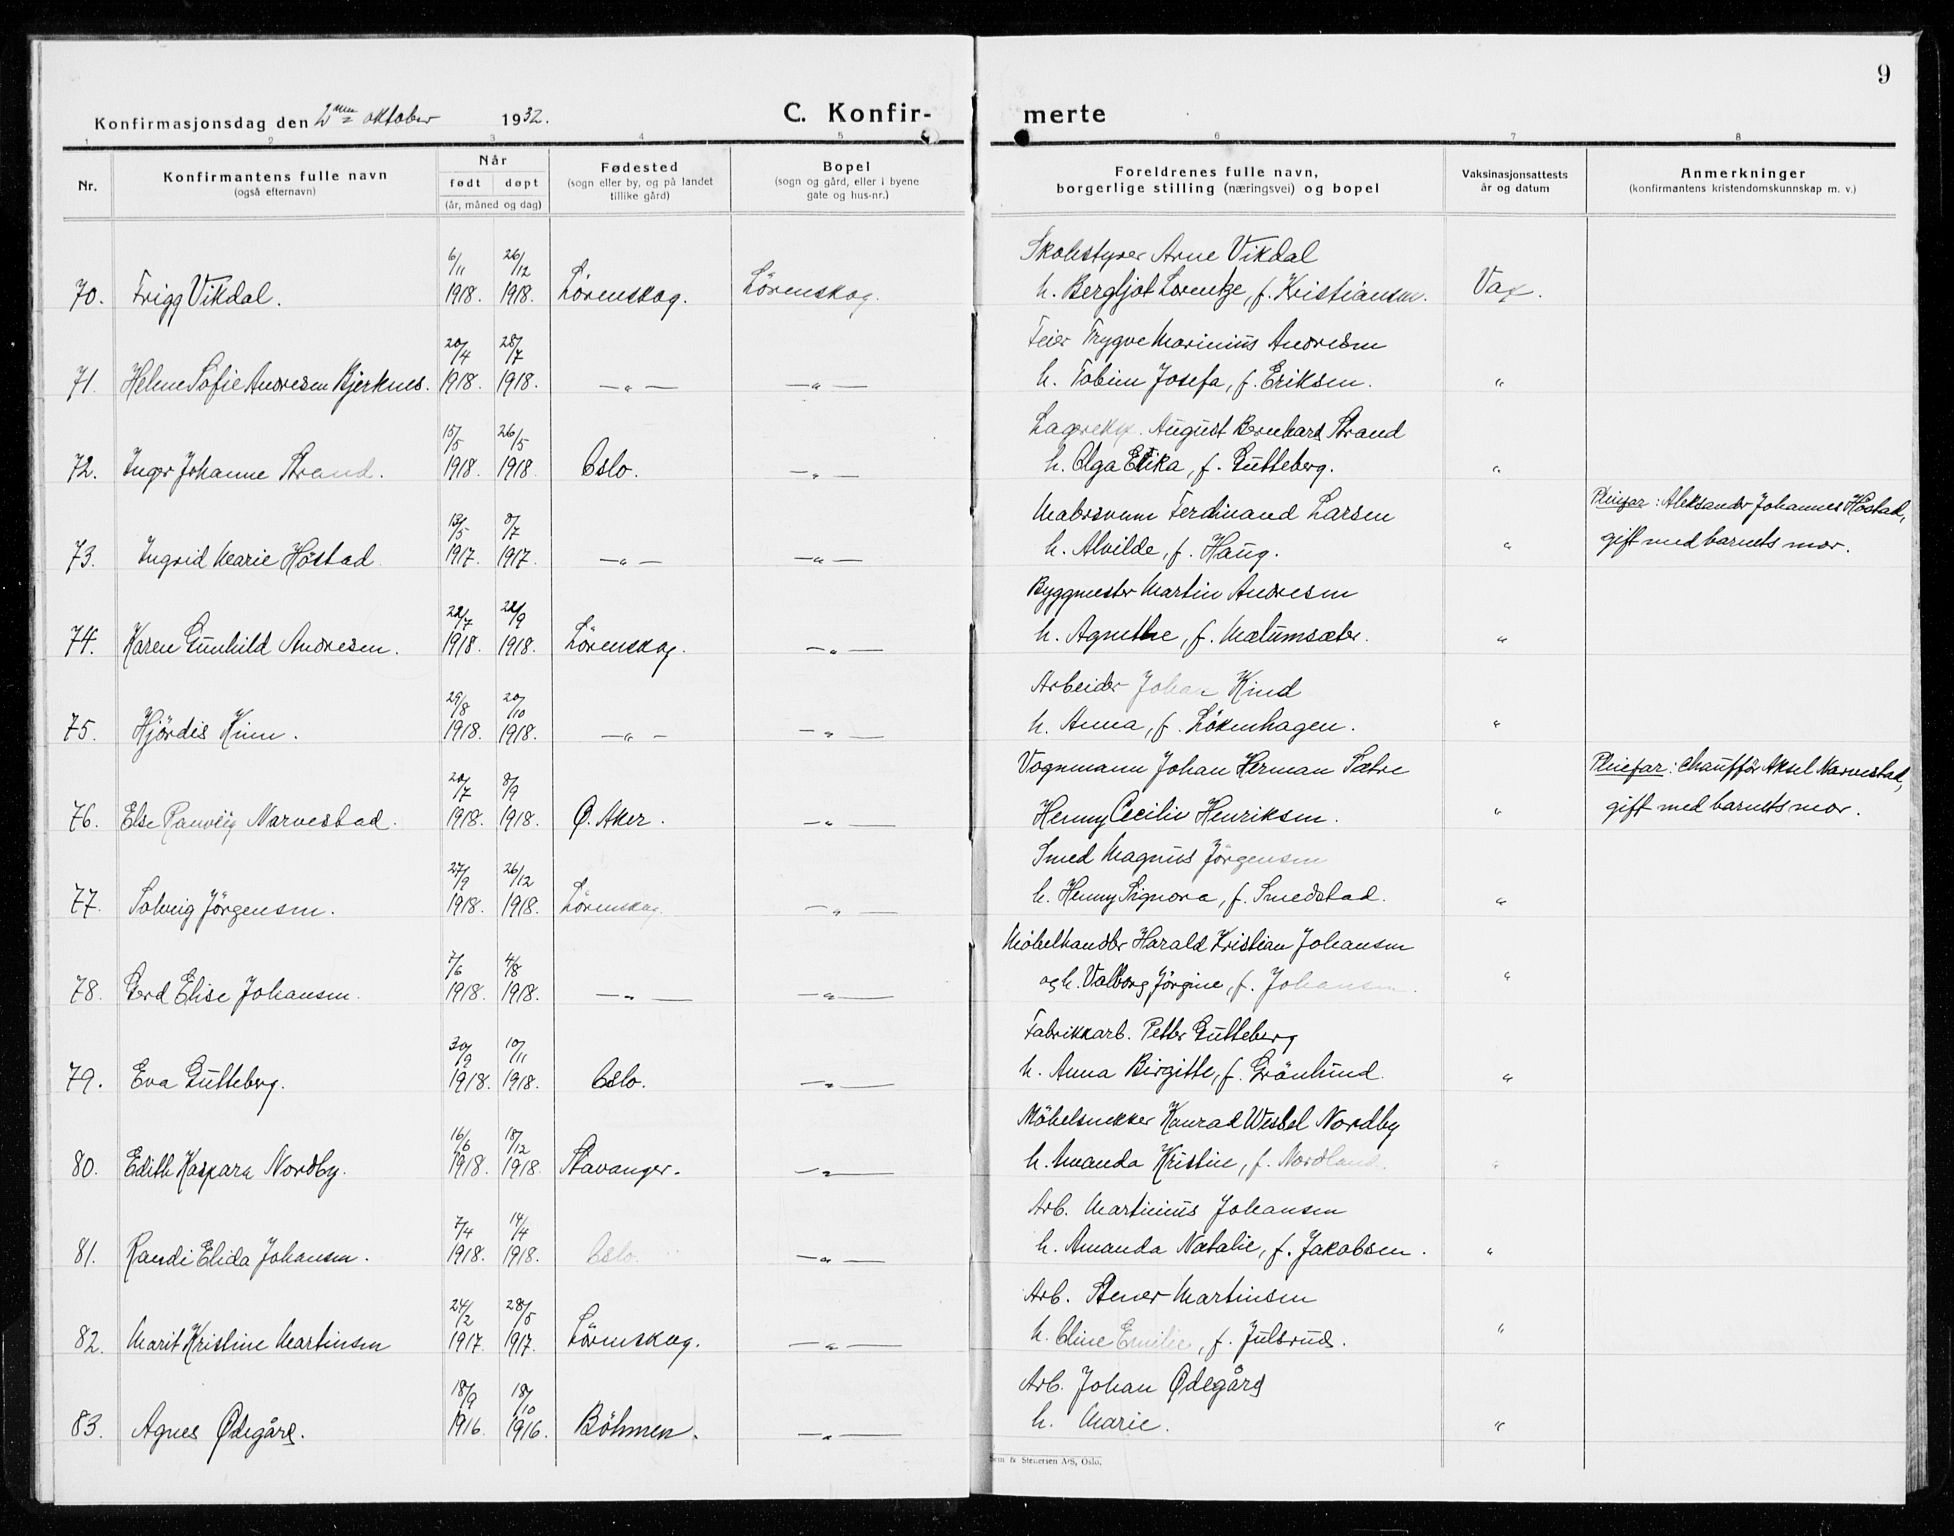 9
Konfirmasjonsdag den 2nen oktober 1932. C. Konfirmerte
1 2 3 4 5 6 7 8
Nr. Konfirmantens fulle navn (også efternavn) Når født døpt (år, måned og dag) Fødested (sogn eller by, og på landet tillike gård) Bopel (sogn og gård, eller i byene gate og hus-nr.) Foreldrenes fulle navn, borgerlige stilling (næringsvei) og bopel Vaksinasjonsattests år og datum Anmerkninger (konfirmantens kristendomskunnskap m. v.)
6/11 26/12 Skolestyrer Arne Vikdal
70. Frigg Vikdal. 1918. 1918. Lörenskog. Lörenskog. h. Bergljot Lorentze, f. Kristiansen. Vax.
20/4 28/7 Feier Trygve Marinius Andresen
71. Helene Sofie Andresen Bjerknes. 1918. 1918. —„— —„— h. Tobine Josefa, f. Eriksen. „
15/5 26/5 Lagereksp. August Bernhard Strand
72. Inger Johanne Strand. 1918. 1918 Oslo. —„— h. Olga Erika, f. Gutteberg. „
13/5 8/7 Malersvenn Ferdinand Larsen Pleiefar: Aleksander Johannes Höstad,
73. Ingrid Marie Höstad 1917. 1917. —„— —„— h. Alvilde, f. Haug. „ gift med barnets mor.
22/7 22/9 Byggmester Martin Andresen
74. Karen Gunhild Andresen. 1918. 1918. Lörenskog. —„— h. Agnethe, f. Matumsæter. „
29/8 20/10 Arbeider Johan Kind
75. Hjördis Kinn. 1918. 1918. —„— —„— h. Anna, f. Lökenhagen. „
20/7 8/9 Vognmann Johan Herman Sætre Pleiefar: Chaufför Aksel Narvestad,
76. Else Ranveig Narvestad. 1918. 1918. Ø. Aker. —„— Henny Cecilie Henriksen. „ gift med barnets mor.
27/9 26/12 Smed Magnus Jörgensen
77. Solveig Jörgensen. 1918. 1918. Lörenskog. —„— h. Henny Signora, f. Smedstad. „
7/6 4/8 Möbelhandler Harald Kristian Johansen
78. Gerd Elise Johansen. 1918. 1918. —„— —„— og h. Valborg Jörgine, f. Johansen. „
30/9 10/11 Fabrikkarb. Petter Gutteberg
79. Eva Gutteberg. 1918. 1918. Oslo. —„— h. Anna Birgitte, f. Grönlund. „
16/6 18/12 Möbelsnekker Konrad Wessel Nordby
80. Edith Kaspara Nordby. 1918. 1918. Stavanger. —„— h. Amanda Kristine, f. Nordland. „
7/4 14/4 Arb. Martinius Johansen
81. Randi Elida Johansen. 1918. 1918. Oslo. —„— h. Amanda Natalie, f. Jakobsen. „
24/2 28/5 Arb. Stener Martinsen
82. Marit Kristine Martinsen 1917. 1917. Lörenskog. —„— h. Oline Emilie, f. Julsrud. „
18/9 18/10 Arb. Johan Ødegård
83. Agnes Ødegård. 1916. 1916. Böhmen. —„— h. Marie. „
Sem & Stenersen A/S, Oslo.